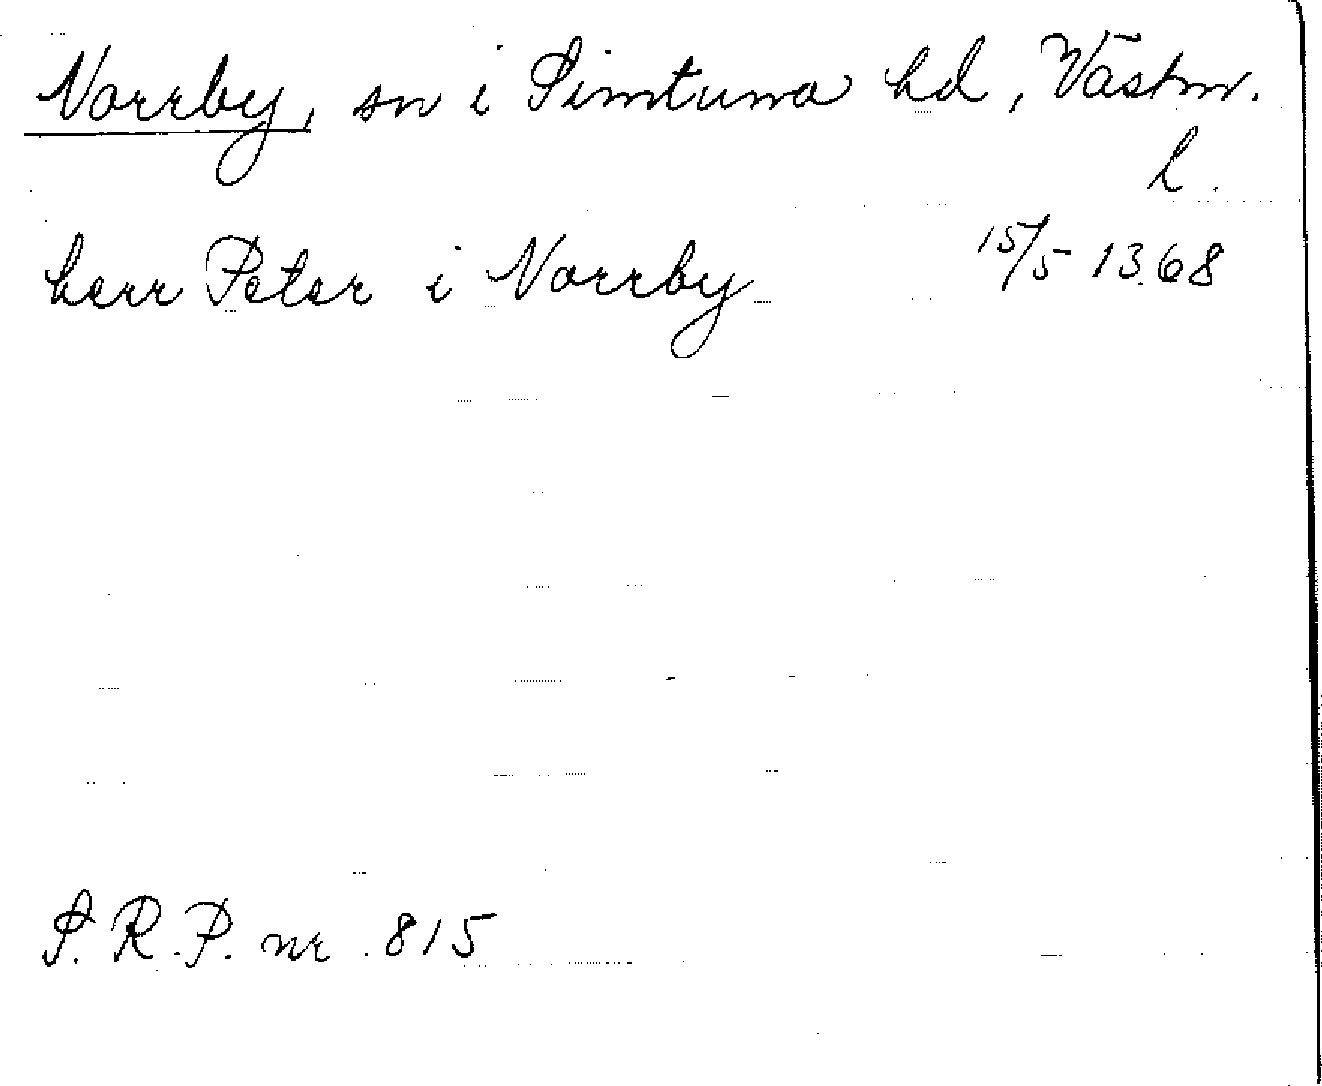 Norrby, sn i Simtuna hd, Västm.
l.
herr Peter i Norrby 15/5 1368
S.R.P. nr 815